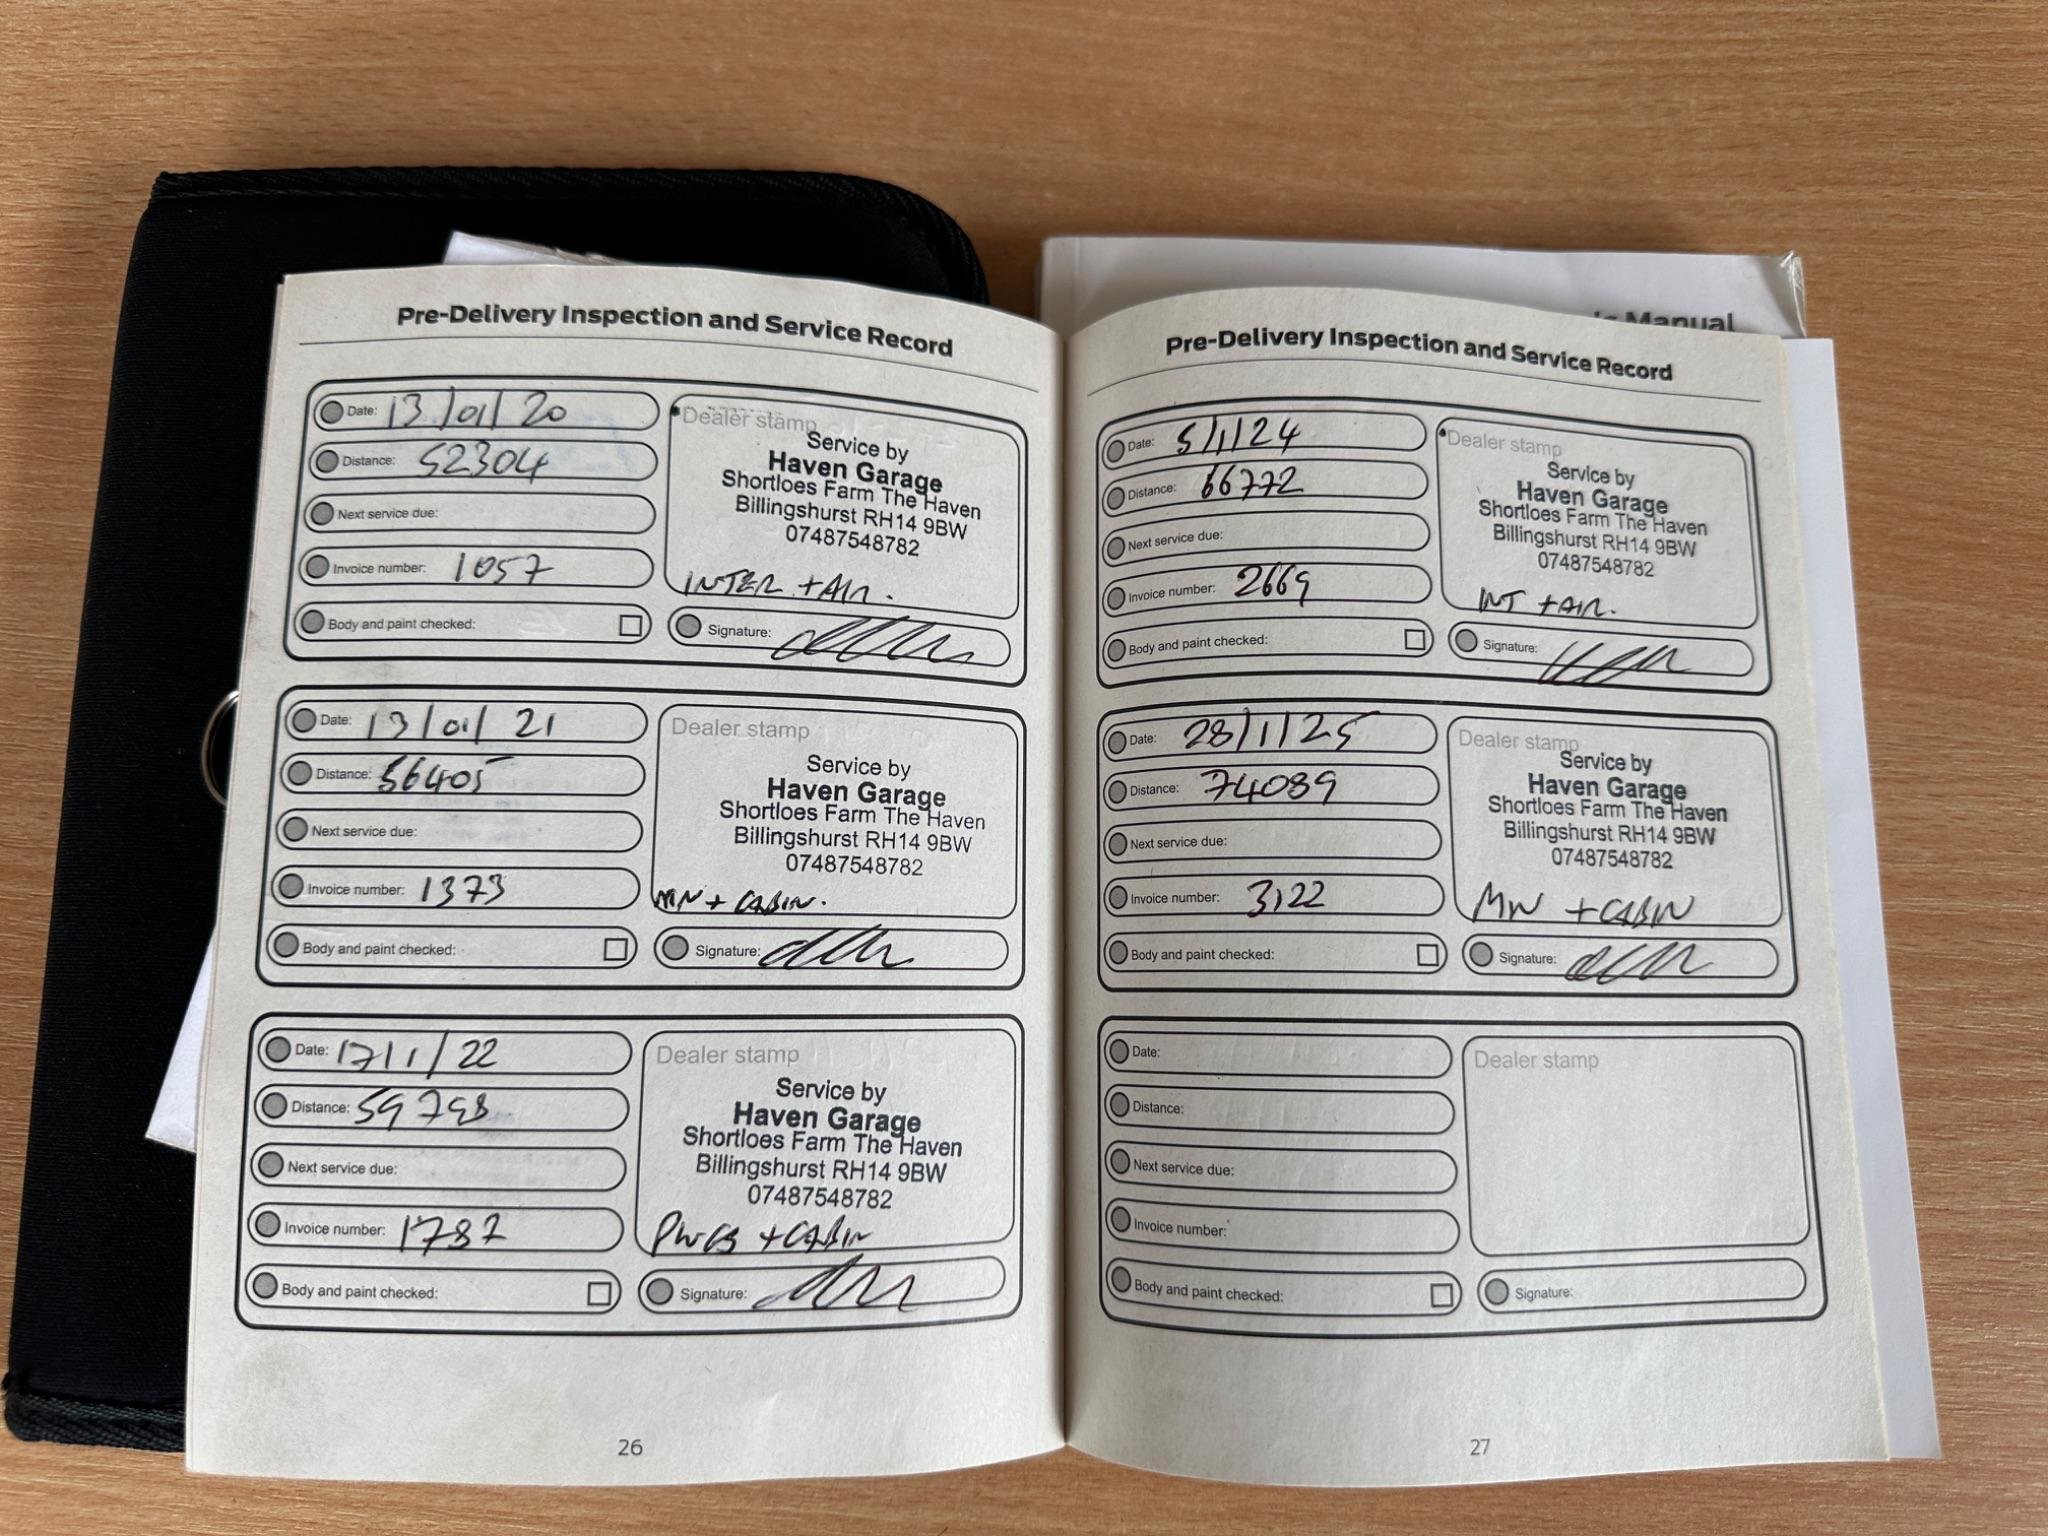 's Manual
Pre-Delivery Inspection and Service Record
Date: 13/01/20
Distance: 52304
Next service due:
Invoice number: 1057
Body and paint checked:
Dealer stamp
Service by
Haven Garage
Shortloes Farm The Haven
Billingshurst RH14 9BW
07487548782
INTER + AIR.
Signature:
Date: 13/01/21
Distance: 56405
Next service due:
Invoice number: 1373
Body and paint checked:
Dealer stamp
Service by
Haven Garage
Shortloes Farm The Haven
Billingshurst RH14 9BW
07487548782
MN + CABIN.
Signature:
Date: 17/1/22
Distance: 59798
Next service due:
Invoice number: 1787
Body and paint checked:
Dealer stamp
Service by
Haven Garage
Shortloes Farm The Haven
Billingshurst RH14 9BW
07487548782
PLUGS + CABIN
Signature:
26
Pre-Delivery Inspection and Service Record
Date: 5/1/24
Distance: 66772
Next service due:
Invoice number: 2669
Body and paint checked:
Dealer stamp
Service by
Haven Garage
Shortloes Farm The Haven
Billingshurst RH14 9BW
07487548782
INT + AIR.
Signature:
Date: 28/1/25
Distance: 74089
Next service due:
Invoice number: 3122
Body and paint checked:
Dealer stamp
Service by
Haven Garage
Shortloes Farm The Haven
Billingshurst RH14 9BW
07487548782
MN + CABIN
Signature:
Date:
Distance:
Next service due:
Invoice number:
Body and paint checked:
Dealer stamp
Signature:
27